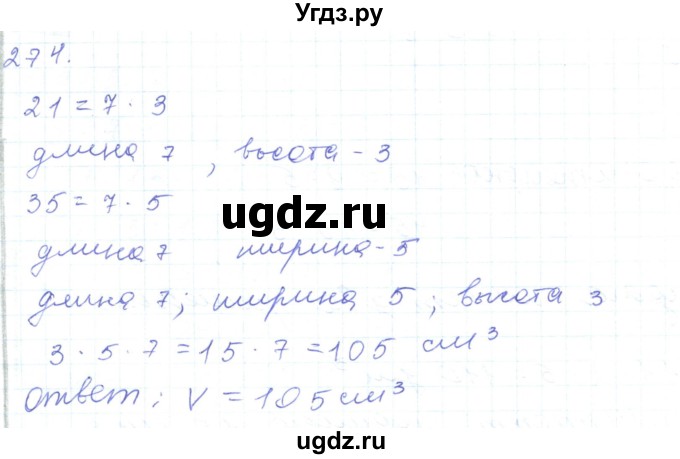 Угдз.ру
274.
21 = 7 · 3
длина 7, высота - 3
35 = 7 · 5
ugdz.ru
длина 7 ширина - 5
длина 7; ширина 5; высота 3
3 · 5 · 7 = 15 · 7 = 105 см³
Ответ: V = 105 см³
ugdz.ru